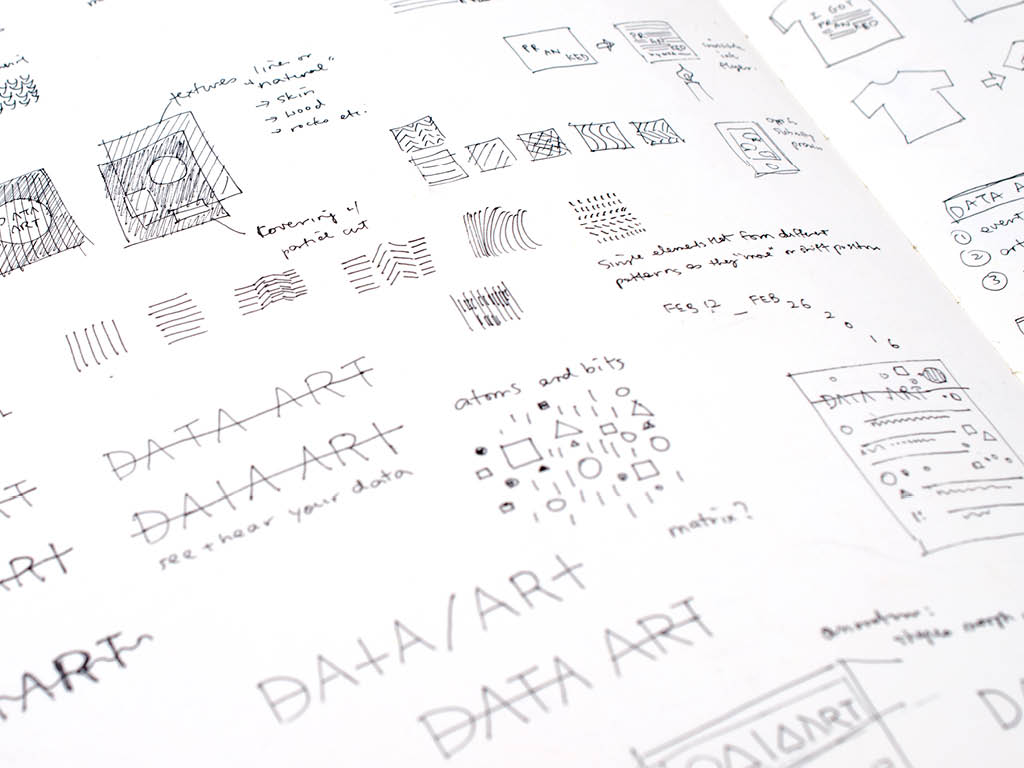 PR AN
KED
PR
AN
KED
I GOT
PRANKED
textures
line or
"natural"
→ skin
→ wood
→ rocks etc.
DATA
ART
covering w/
partial art
simple elements that form different
patterns as they "move" or shift position
FEB 12 _ FEB 26
2016
DATA ART
atoms and bits
DATA ART
see + hear your data
matrix?
ART
ART
DATA/ART
DATA ART
DATA ART
DATA A
① event
② art
③
shapes morph
DATA ART
D